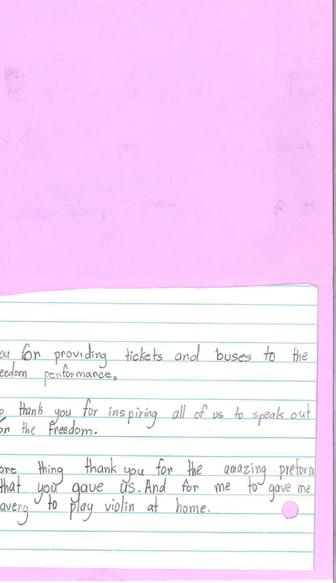 ou for providing tickets and buses to the
eedom performance.
o thank you for inspiring all of us to speak out
on the freedom.
ore thing thank you for the amazing preform
that you gave us. And for me to gave me
avery to play violin at home.